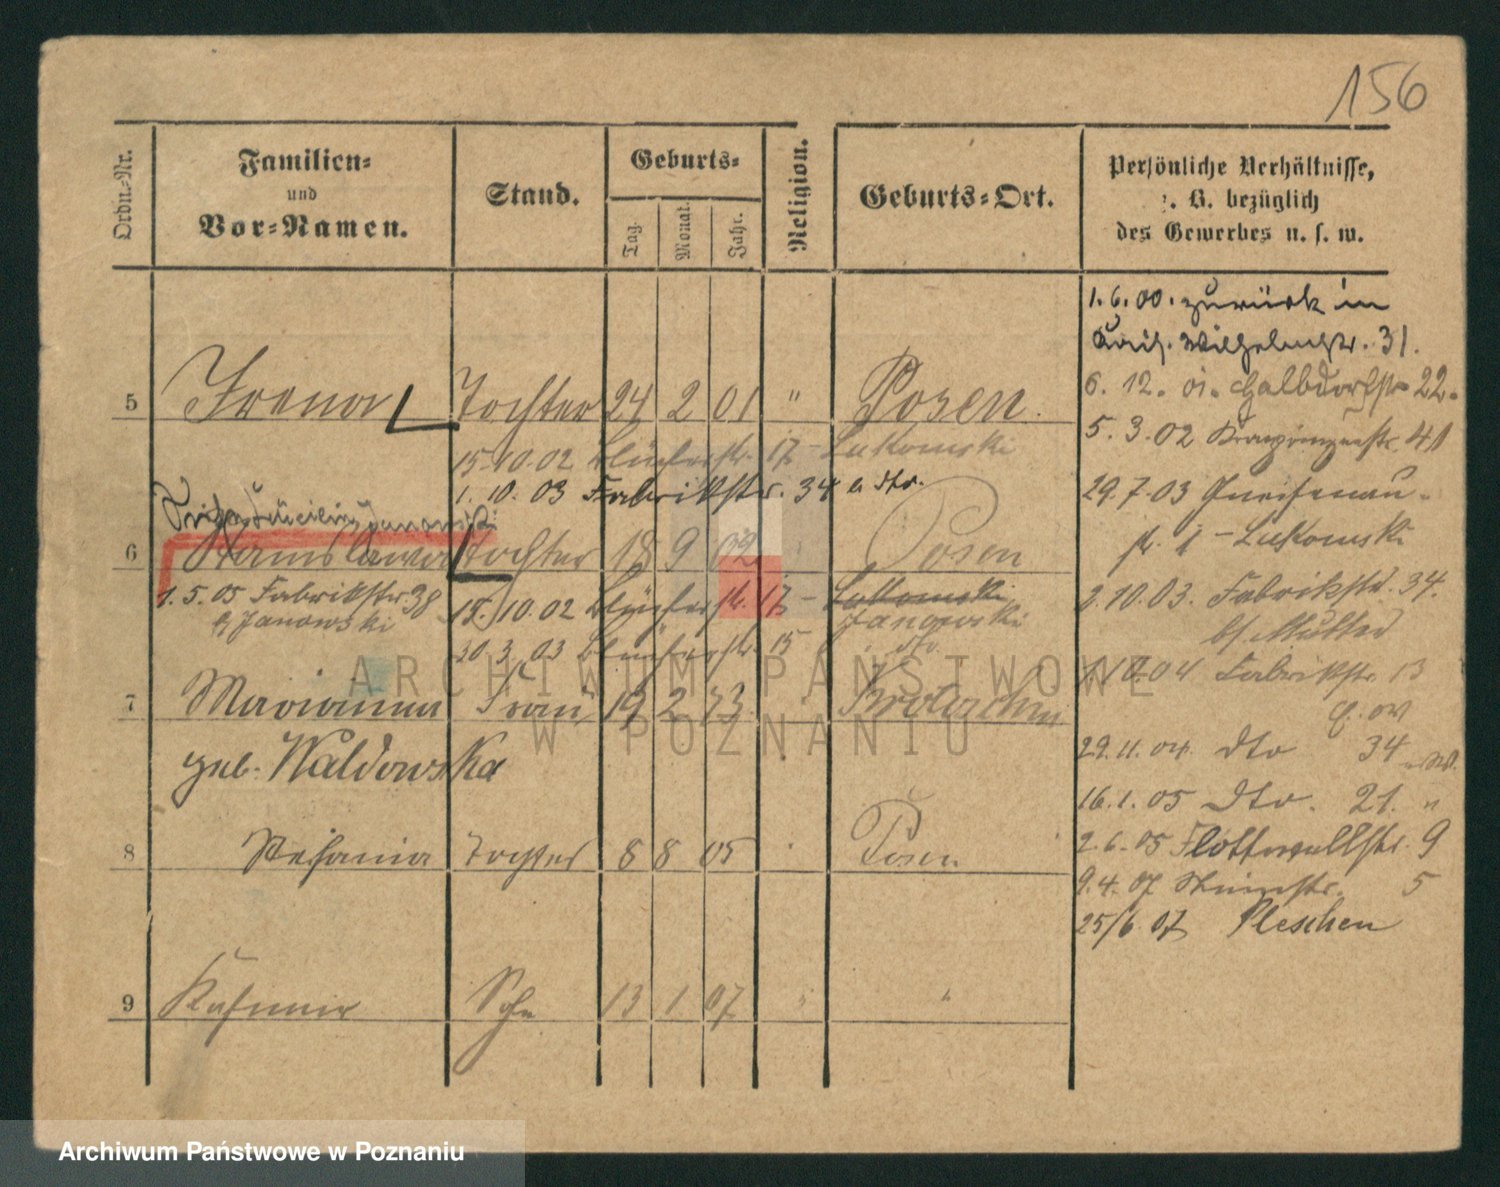 156
Ordn.-Nr.
Familien-
und
Vor-Namen.
Stand.
Geburts-
Tag.
Monat.
Jahr.
Religion.
Geburts-Ort.
Persönliche Verhältnisse,
z. B. bezüglich
des Gewerbes u. s. w.
1. 6. 00. zurück in
Wilhelmstr. 31.
5 Irena Tochter 24 2 01 " Posen.
6. 12. 01. Halbdorfstr 22.
5. 3. 02 41
15. 10. 02 Blücherstr. 17 – Lukomski
1. 10. 03 Fabrikstr. 34 dto.
29. 7. 03 Gneisenau-
str. 1 – Lukomski
Janowski
6 Stanislawa Tochter 18 9 02 Posen
1. 5. 05 Fabrikstr 38
b/ Janowski
15. 10. 02 Blücherstr. 17 – Lukomski
Janowski
30. 3. 03 Blücherstr. 15 dto
2. 10. 03. Fabrikstr. 34.
b/ Mutter
10. 04 Fabrikstr. 13
7 Marianna Frau 19 2 73. Krotoschin
geb. Waldowska
29. 11. 04. dto 34
16. 1. 05 dto. 21. "
8 Stefania Tochter 8 8 05 Posen
2. 6. 05 Flottwellstr. 9
9. 4. 07 5
25/6. 07 Pleschen
9 Kasimir Sohn 13 1 07 " "
ARCHIWUM PAŃSTWOWE
W POZNANIU
Archiwum Państwowe w Poznaniu